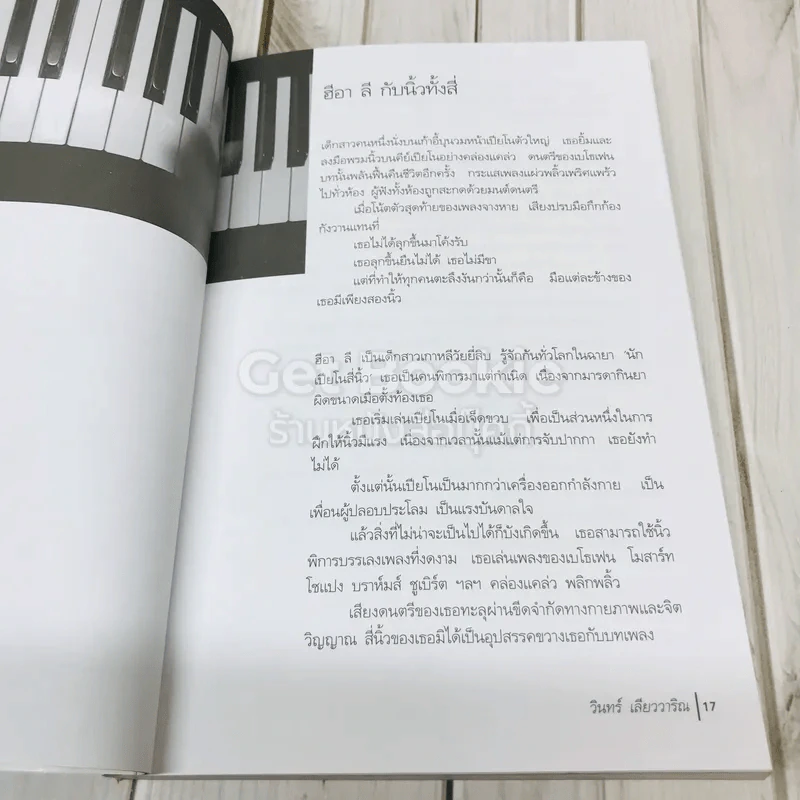 ฮีอา ลี กับนิ้วทั้งสี่
เด็กสาวคนหนึ่งนั่งบนเก้าอี้บุนวมหน้าเปียโนตัวใหญ่ เธอยิ้มและ
ลงมือพรมนิ้วบนคีย์เปียโนอย่างคล่องแคล่ว ดนตรีของเบโธเฟน
บทนั้นพลันฟื้นคืนชีวิตอีกครั้ง กระแสเพลงแผ่วพลิ้วเพริศแพร้ว
ไปทั่วห้อง ผู้ฟังทั้งห้องถูกสะกดด้วยมนต์ดนตรี
เมื่อโน้ตตัวสุดท้ายของเพลงจางหาย เสียงปรบมือกึกก้อง
กังวานแทนที่
เธอไม่ได้ลุกขึ้นมาโค้งรับ
เธอลุกขึ้นยืนไม่ได้ เธอไม่มีขา
แต่ที่ทำให้ทุกคนตะลึงงันกว่านั้นก็คือ มือแต่ละข้างของ
เธอมีเพียงสองนิ้ว
ฮีอา ลี เป็นเด็กสาวเกาหลีวัยยี่สิบ รู้จักกันทั่วโลกในฉายา ‘นัก
เปียโนสี่นิ้ว’ เธอเป็นคนพิการมาแต่กำเนิด เนื่องจากมารดากินยา
ผิดขนาดเมื่อตั้งท้องเธอ
เธอเริ่มเล่นเปียโนเมื่อเจ็ดขวบ เพื่อเป็นส่วนหนึ่งในการ
ฝึกให้นิ้วมีแรง เนื่องจากเวลานั้นแม้แต่การจับปากกา เธอยังทำ
ไม่ได้
ตั้งแต่นั้นเปียโนเป็นมากกว่าเครื่องออกกำลังกาย เป็น
เพื่อนผู้ปลอบประโลม เป็นแรงบันดาลใจ
แล้วสิ่งที่ไม่น่าจะเป็นไปได้ก็บังเกิดขึ้น เธอสามารถใช้นิ้ว
พิการบรรเลงเพลงที่งดงาม เธอเล่นเพลงของเบโธเฟน โมสาร์ท
โชแปง บราห์มส์ ชูเบิร์ต ฯลฯ คล่องแคล่ว พลิกพลิ้ว
เสียงดนตรีของเธอทะลุผ่านขีดจำกัดทางกายภาพและจิต
วิญญาณ สี่นิ้วของเธอมิได้เป็นอุปสรรคขวางเธอกับบทเพลง
วินทร์ เลียววาริณ | 17